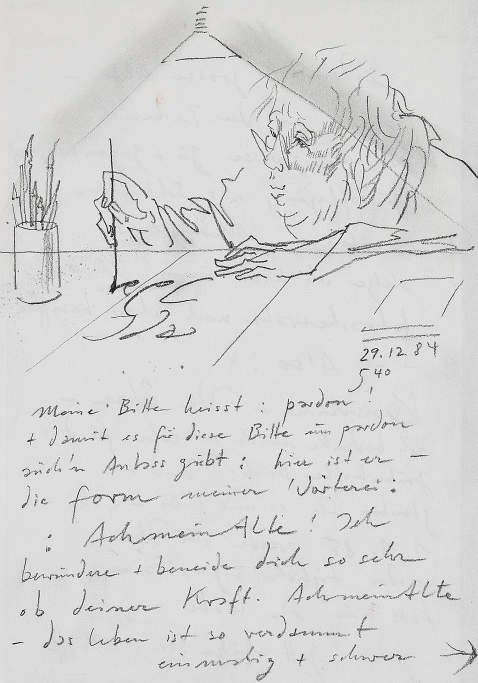 29.12.84
5 40
Meine Bitte heisst : pardon !
+ damit es für diese Bitte um pardon
auch'n Anlass giebt : hier ist er —
die form meiner Wörterei :
: AchmeinAlte ! Ich
bewundere + beneide dich so sehr
ob deiner Kraft. AchmeinAlte
— das leben ist so verdammt
einmalig + schwer →